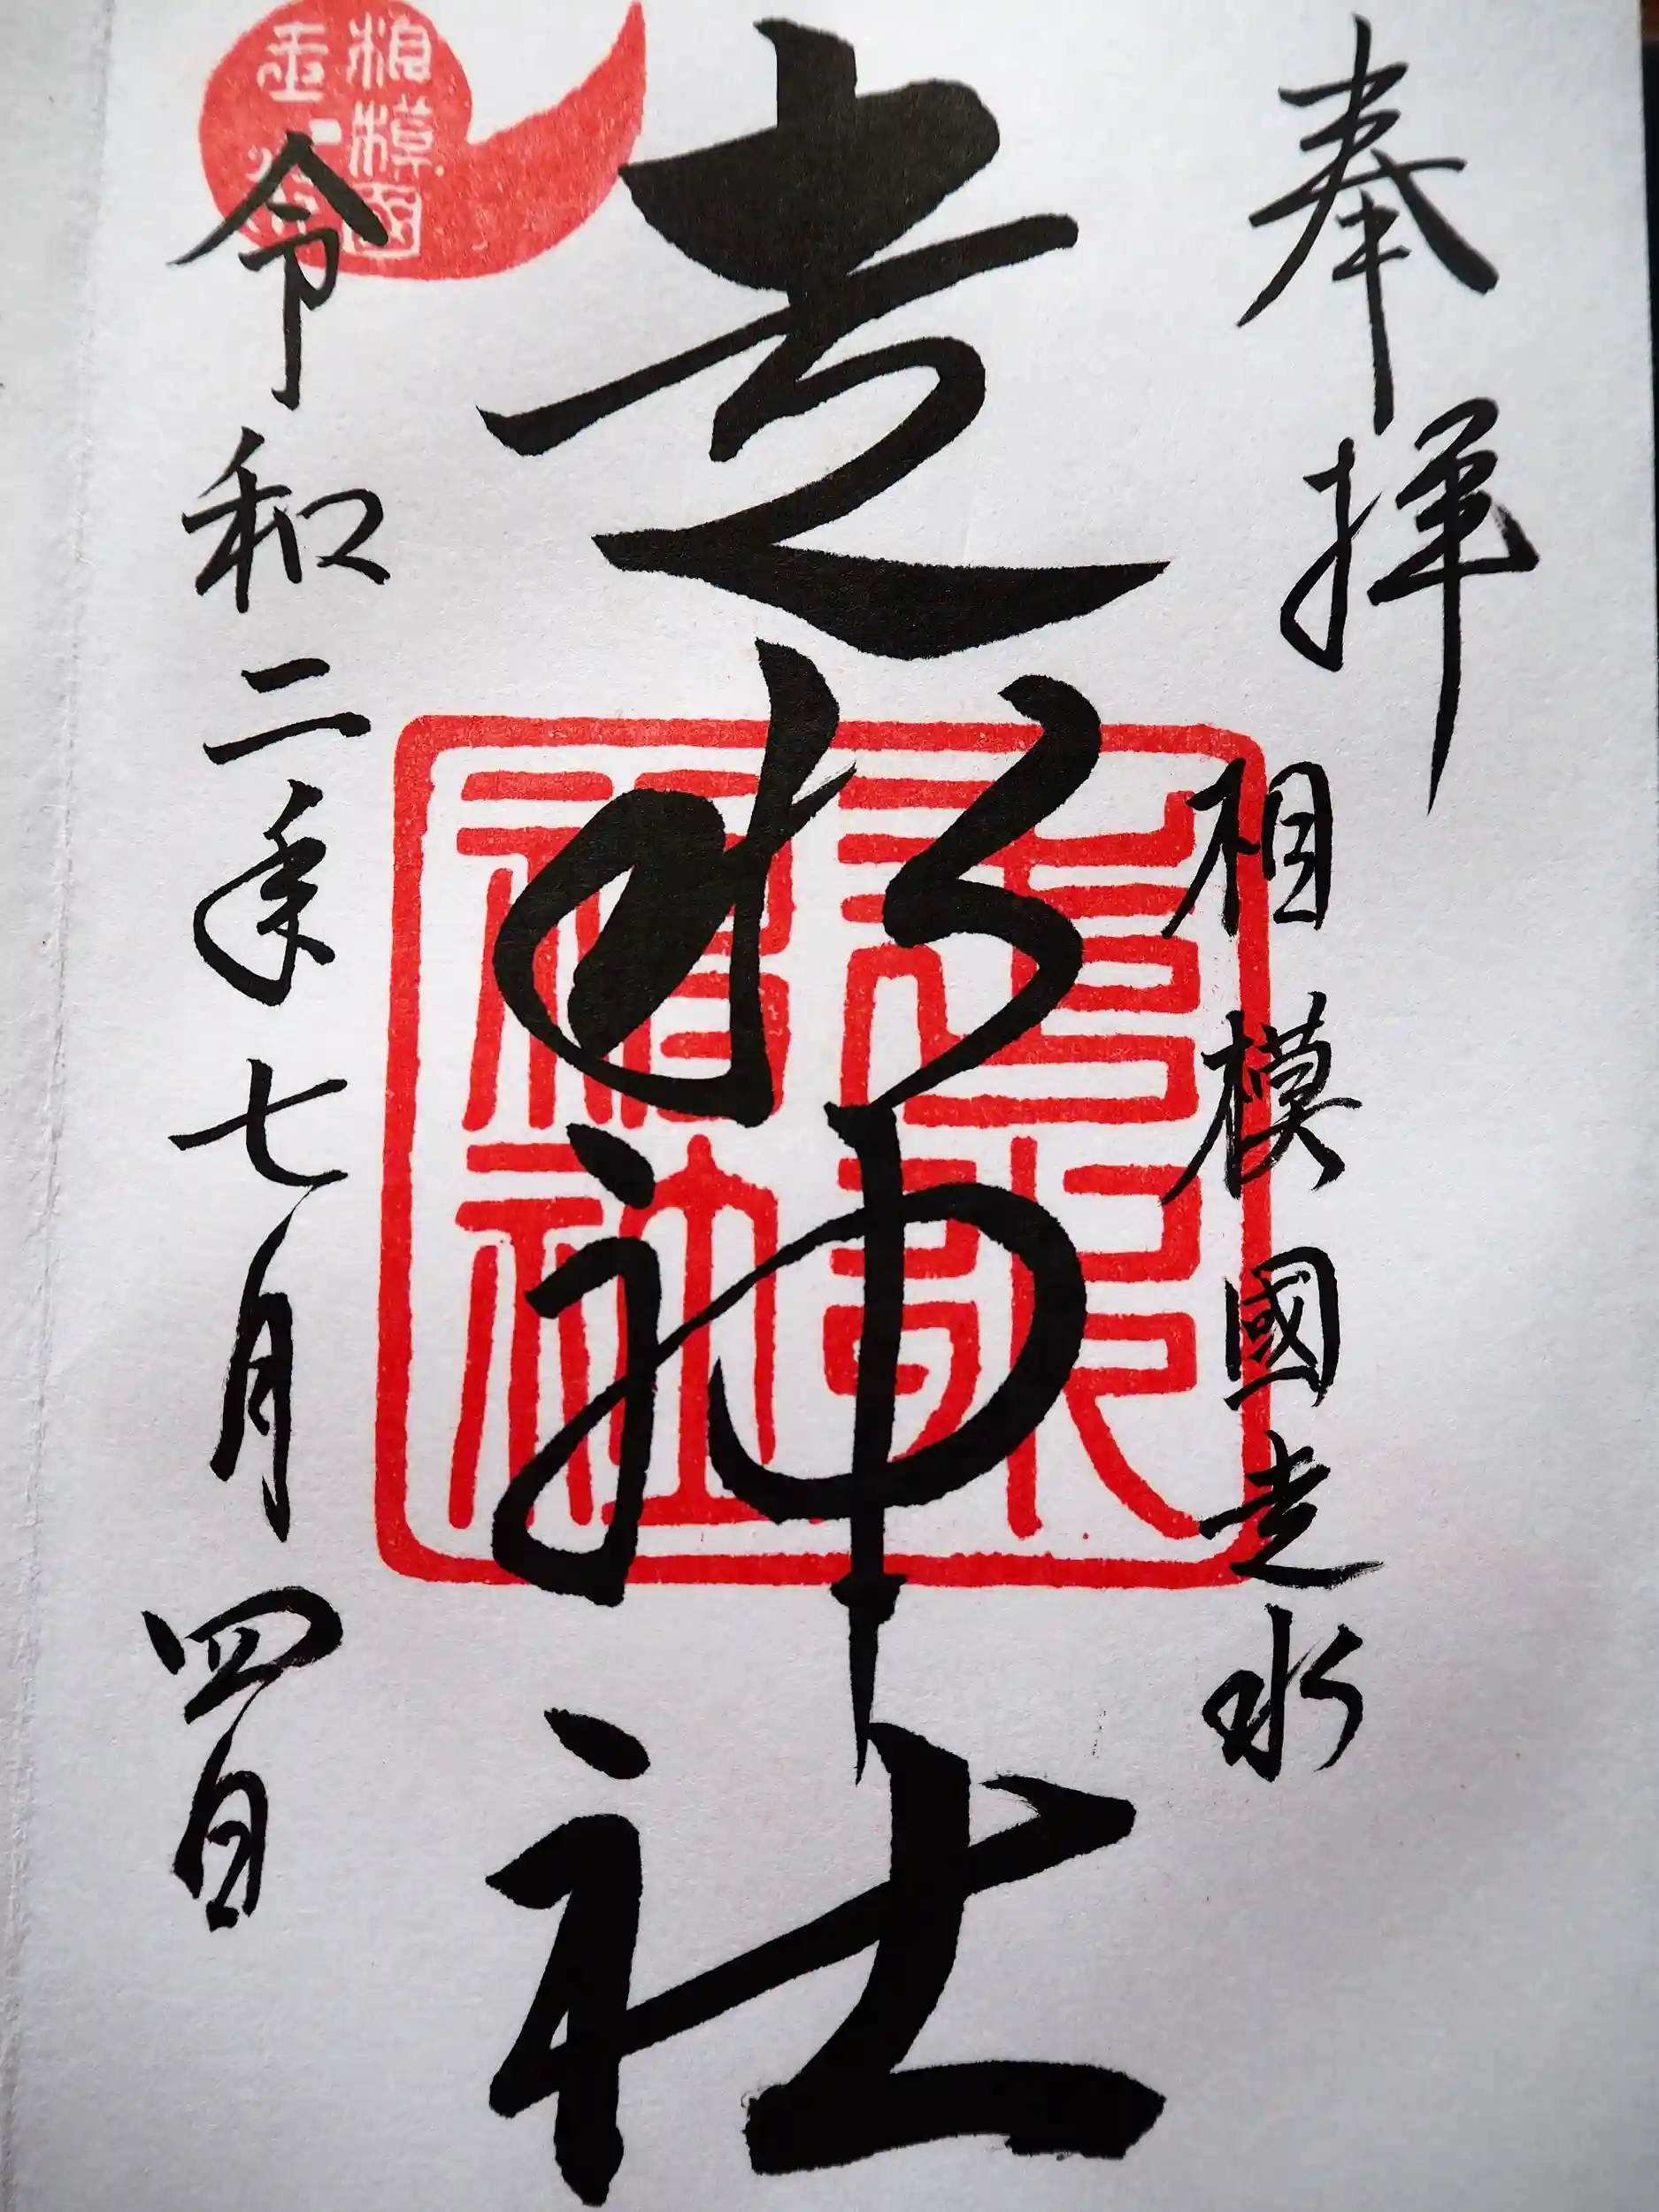 奉拝
相模國走水
走水神社
令和二年七月四日
相模国
走水
走水神社